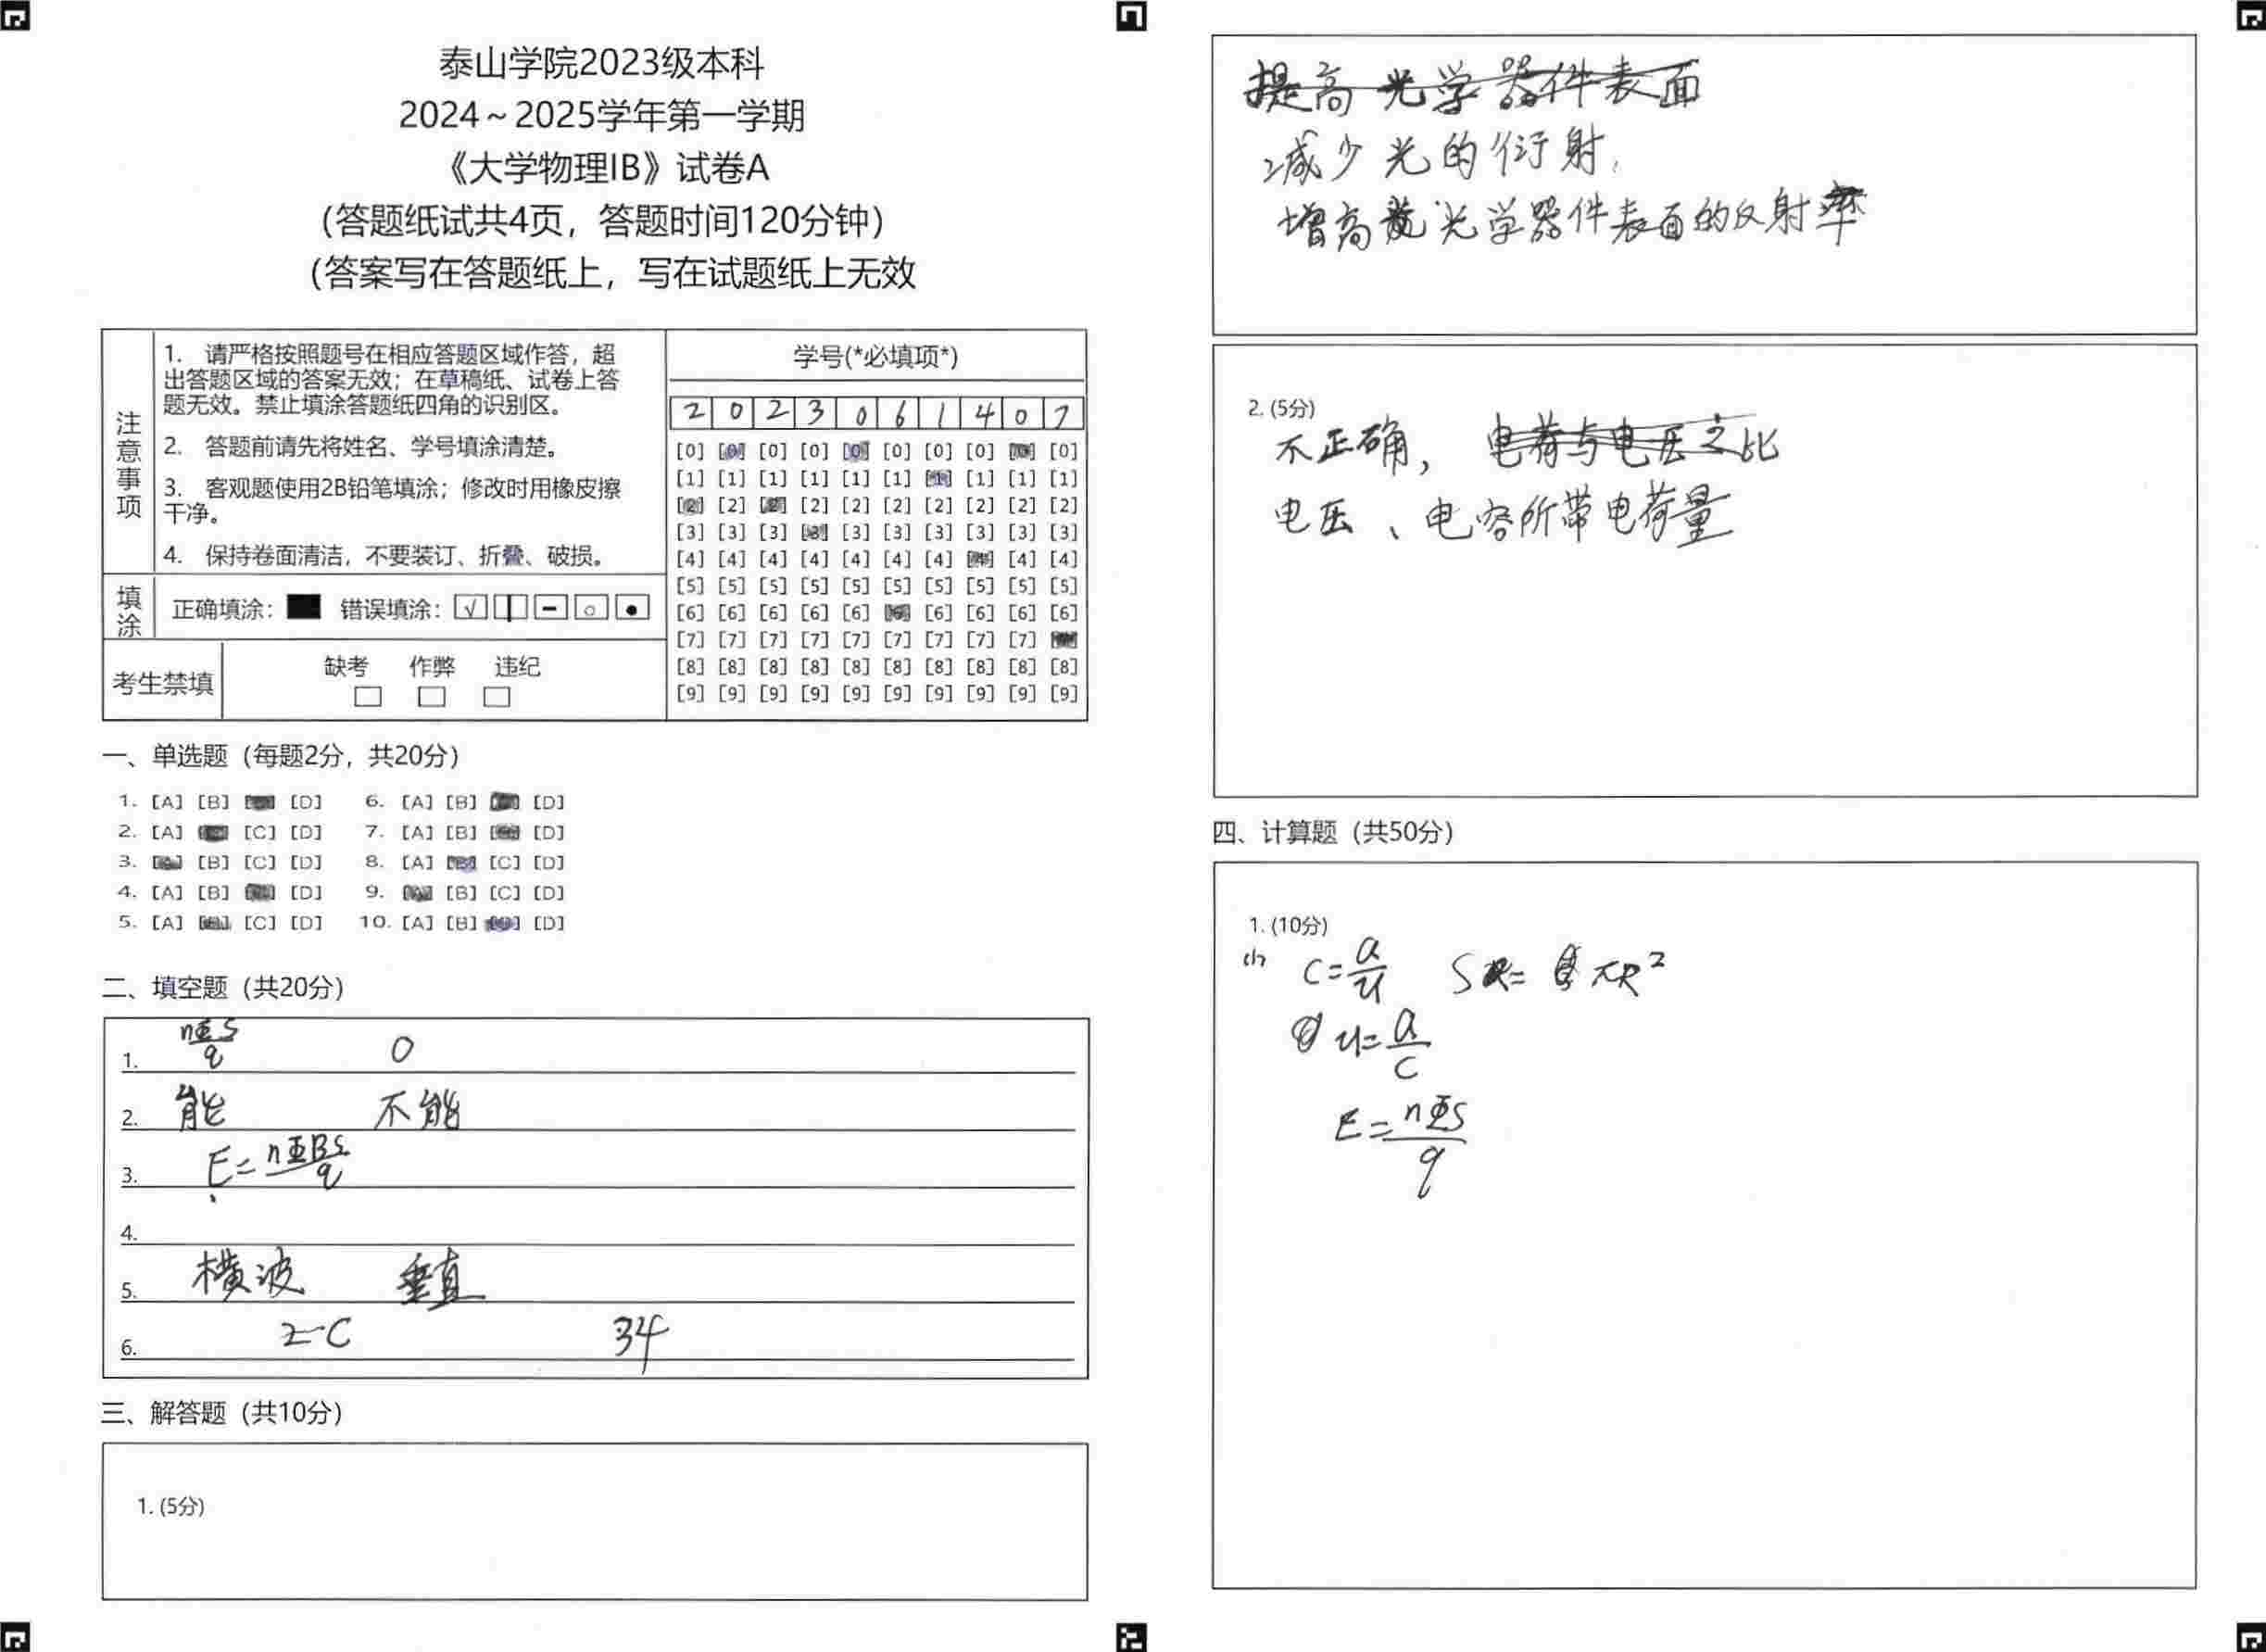 泰山学院2023级本科
2024～2025学年第一学期
《大学物理IB》试卷A
（答题纸试共4页，答题时间120分钟）
（答案写在答题纸上，写在试题纸上无效
注意事项
1. 请严格按照题号在相应答题区域作答，超
出答题区域的答案无效；在草稿纸、试卷上答
题无效。禁止填涂答题纸四角的识别区。
2. 答题前请先将姓名、学号填涂清楚。
3. 客观题使用2B铅笔填涂；修改时用橡皮擦
干净。
4. 保持卷面清洁，不要装订、折叠、破损。
填涂
正确填涂： 错误填涂：
考生禁填
缺考 作弊 违纪
学号(*必填项*)
2 0 2 3 0 6 1 4 0 7
[0] [0] [0] [0] [0] [0] [0] [0] [0] [0]
[1] [1] [1] [1] [1] [1] [1] [1] [1] [1]
[2] [2] [2] [2] [2] [2] [2] [2] [2] [2]
[3] [3] [3] [3] [3] [3] [3] [3] [3] [3]
[4] [4] [4] [4] [4] [4] [4] [4] [4] [4]
[5] [5] [5] [5] [5] [5] [5] [5] [5] [5]
[6] [6] [6] [6] [6] [6] [6] [6] [6] [6]
[7] [7] [7] [7] [7] [7] [7] [7] [7] [7]
[8] [8] [8] [8] [8] [8] [8] [8] [8] [8]
[9] [9] [9] [9] [9] [9] [9] [9] [9] [9]
一、单选题（每题2分，共20分）
1. [A] [B] [D] 6. [A] [B] [D]
2. [A] [C] [D] 7. [A] [B] [D]
3. [B] [C] [D] 8. [A] [B] [C] [D]
4. [A] [B] [D] 9. [B] [C] [D]
5. [A] [C] [D] 10. [A] [B] [D]
二、填空题（共20分）
1. nΦS/q 0
2. 能 不能
3. E=nΦBS/q
4.
5. 横波 垂直
6. 2-C 34
三、解答题（共10分）
1. (5分)
提高光学器件表面
减少光的衍射.
增高 光学器件表面的反射率
2. (5分)
不正确， 电荷与电压之比
电压、电容所带电荷量
四、计算题（共50分）
1. (10分)
(1) C=Q/U S = πR²
U=Q/C
E=nΦS/q